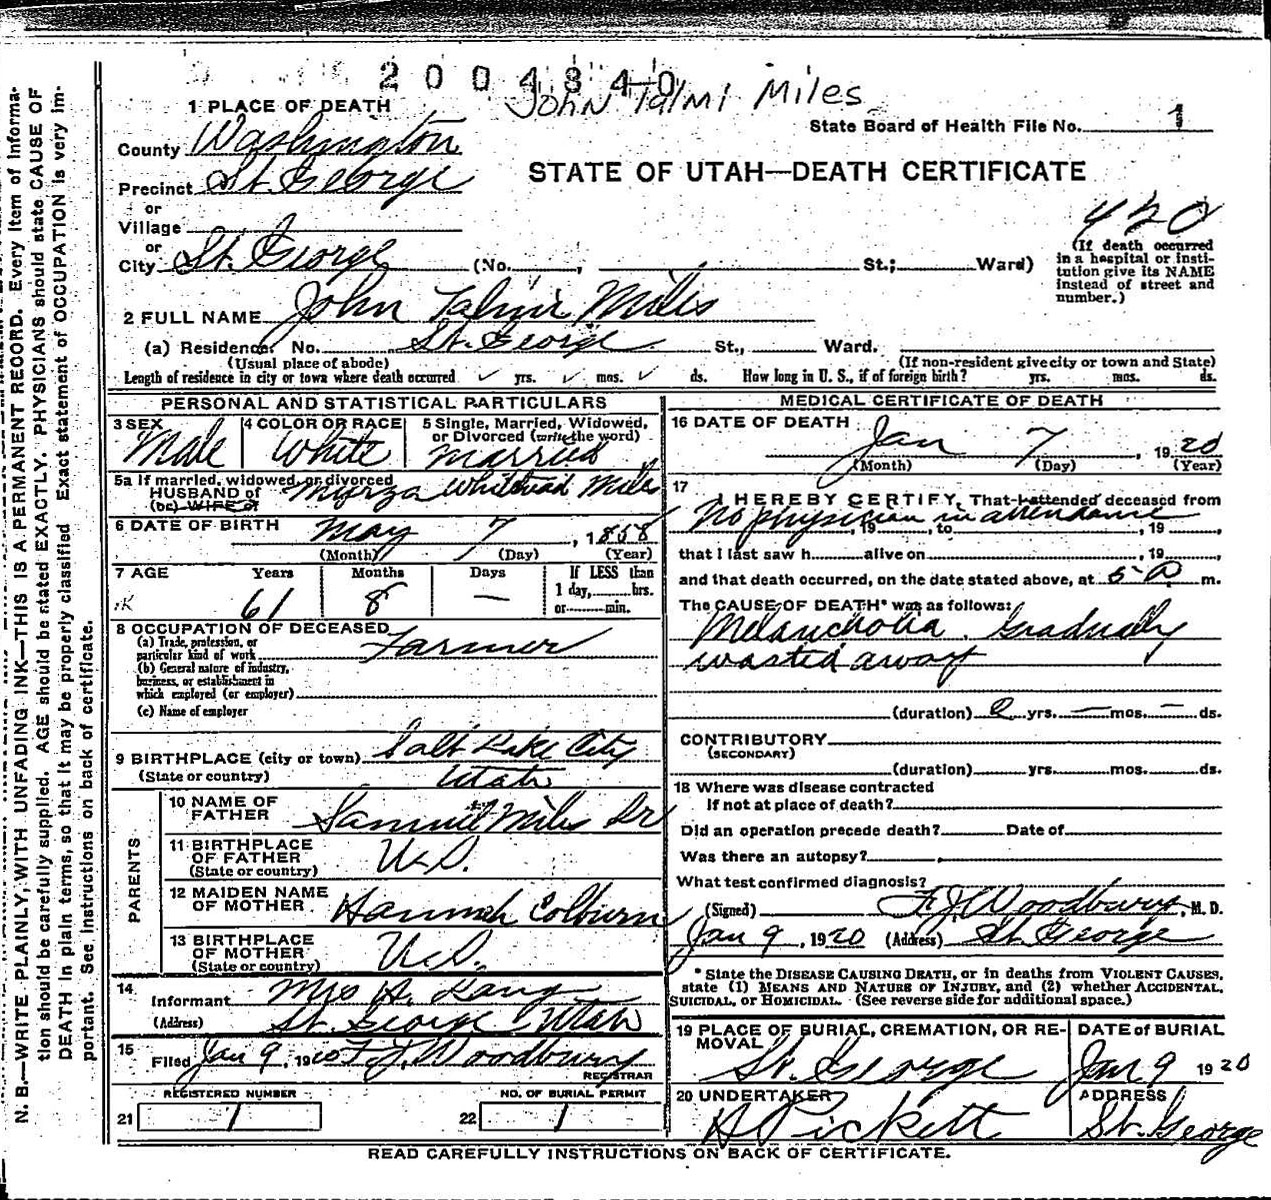 2004340
John Talmi Miles
1 PLACE OF DEATH
State Board of Health File No. 1
County Washington
STATE OF UTAH—DEATH CERTIFICATE
Precinct St. George
or
Village
or
City St. George (No. , St.; Ward)
420
(If death occurred
in a hospital or insti-
tution give its NAME
instead of street and
number.)
2 FULL NAME John Talmi Miles
(a) Residence. No. St. George St., Ward.
(Usual place of abode) (If non-resident give city or town and State)
Length of residence in city or town where death occurred yrs. mos. ds. How long in U. S., if of foreign birth? yrs. mos. ds.
PERSONAL AND STATISTICAL PARTICULARS
3 SEX
Male
4 COLOR OR RACE
White
5 Single, Married, Widowed,
or Divorced (write the word)
married
5a If married, widowed, or divorced
HUSBAND of
(or) WIFE of
Whitehead Miles
6 DATE OF BIRTH May 7, 1858
(Month) (Day) (Year)
7 AGE Years Months Days If LESS than
1 day, hrs.
or min.
61 8 —
8 OCCUPATION OF DECEASED
(a) Trade, profession, or
particular kind of work Farmer
(b) General nature of industry,
business, or establishment in
which employed (or employer)
(c) Name of employer
9 BIRTHPLACE (city or town) Salt Lake City
(State or country) Utah
PARENTS
10 NAME OF
FATHER Samuel Miles Sr
11 BIRTHPLACE
OF FATHER U.S.
(State or country)
12 MAIDEN NAME
OF MOTHER Hannah Colburn
13 BIRTHPLACE
OF MOTHER U.S.
(State or country)
14
Informant Mrs H. Lang
(Address) St. George Utah
15
Filed Jan 9, 1920 F. J. Woodbury
REGISTRAR
REGISTERED NUMBER
21 1
NO. OF BURIAL PERMIT
22 1
MEDICAL CERTIFICATE OF DEATH
16 DATE OF DEATH
Jan 7, 1920
(Month) (Day) (Year)
17
I HEREBY CERTIFY, That I attended deceased from
No physician in attendance
, 19 , to , 19 ,
that I last saw h alive on , 19 ,
and that death occurred, on the date stated above, at 5 A m.
The CAUSE OF DEATH* was as follows:
Melancholia. Gradually
wasted away
(duration) 2 yrs. — mos. — ds.
CONTRIBUTORY
(SECONDARY)
(duration) yrs. mos. ds.
18 Where was disease contracted
If not at place of death?
Did an operation precede death? Date of
Was there an autopsy?
What test confirmed diagnosis?
(Signed) F. J. Woodbury, M. D.
Jan 9, 1920 (Address) St. George
*State the DISEASE CAUSING DEATH, or in deaths from VIOLENT CAUSES,
state (1) MEANS AND NATURE OF INJURY, and (2) whether ACCIDENTAL,
SUICIDAL, or HOMICIDAL. (See reverse side for additional space.)
19 PLACE OF BURIAL, CREMATION, OR RE-
MOVAL
St. George
DATE of BURIAL
Jan 9 1920
20 UNDERTAKER
H Pickett
ADDRESS
St. George
READ CAREFULLY INSTRUCTIONS ON BACK OF CERTIFICATE.
N. B.—WRITE PLAINLY, WITH UNFADING INK—THIS IS A PERMANENT RECORD. Every item of informa-
tion should be carefully supplied. AGE should be stated EXACTLY. PHYSICIANS should state CAUSE OF
DEATH in plain terms, so that it may be properly classified. Exact statement of OCCUPATION is very im-
portant. See instructions on back of certificate.